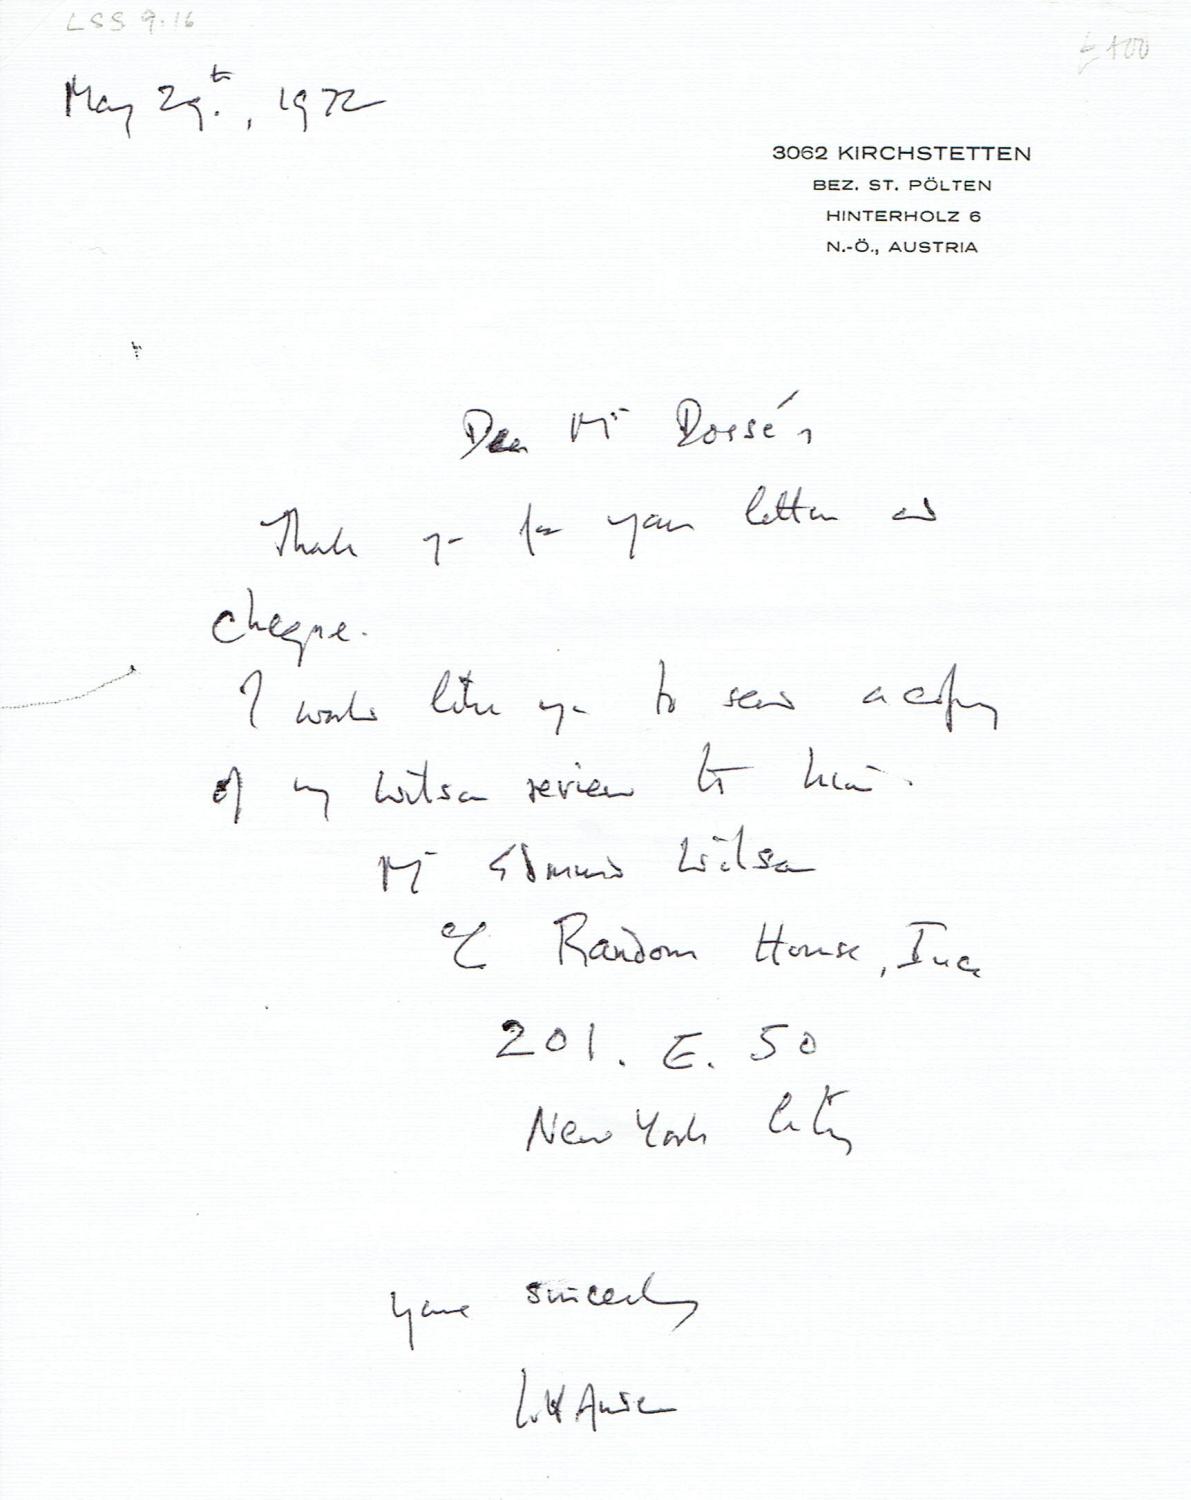 LSS 9.16
£100
May 29th, 1972
3062 KIRCHSTETTEN
BEZ. ST. PÖLTEN
HINTERHOLZ 6
N.-Ö., AUSTRIA
Dear Mr Dossé,
Thank you for your letter and
cheque.
I would like you to send a copy
of my Wilson review to him.
Mr Edmund Wilson
c/o Random House, Inc
201. E. 50
New York City
Yours sincerely
W.H. Auden